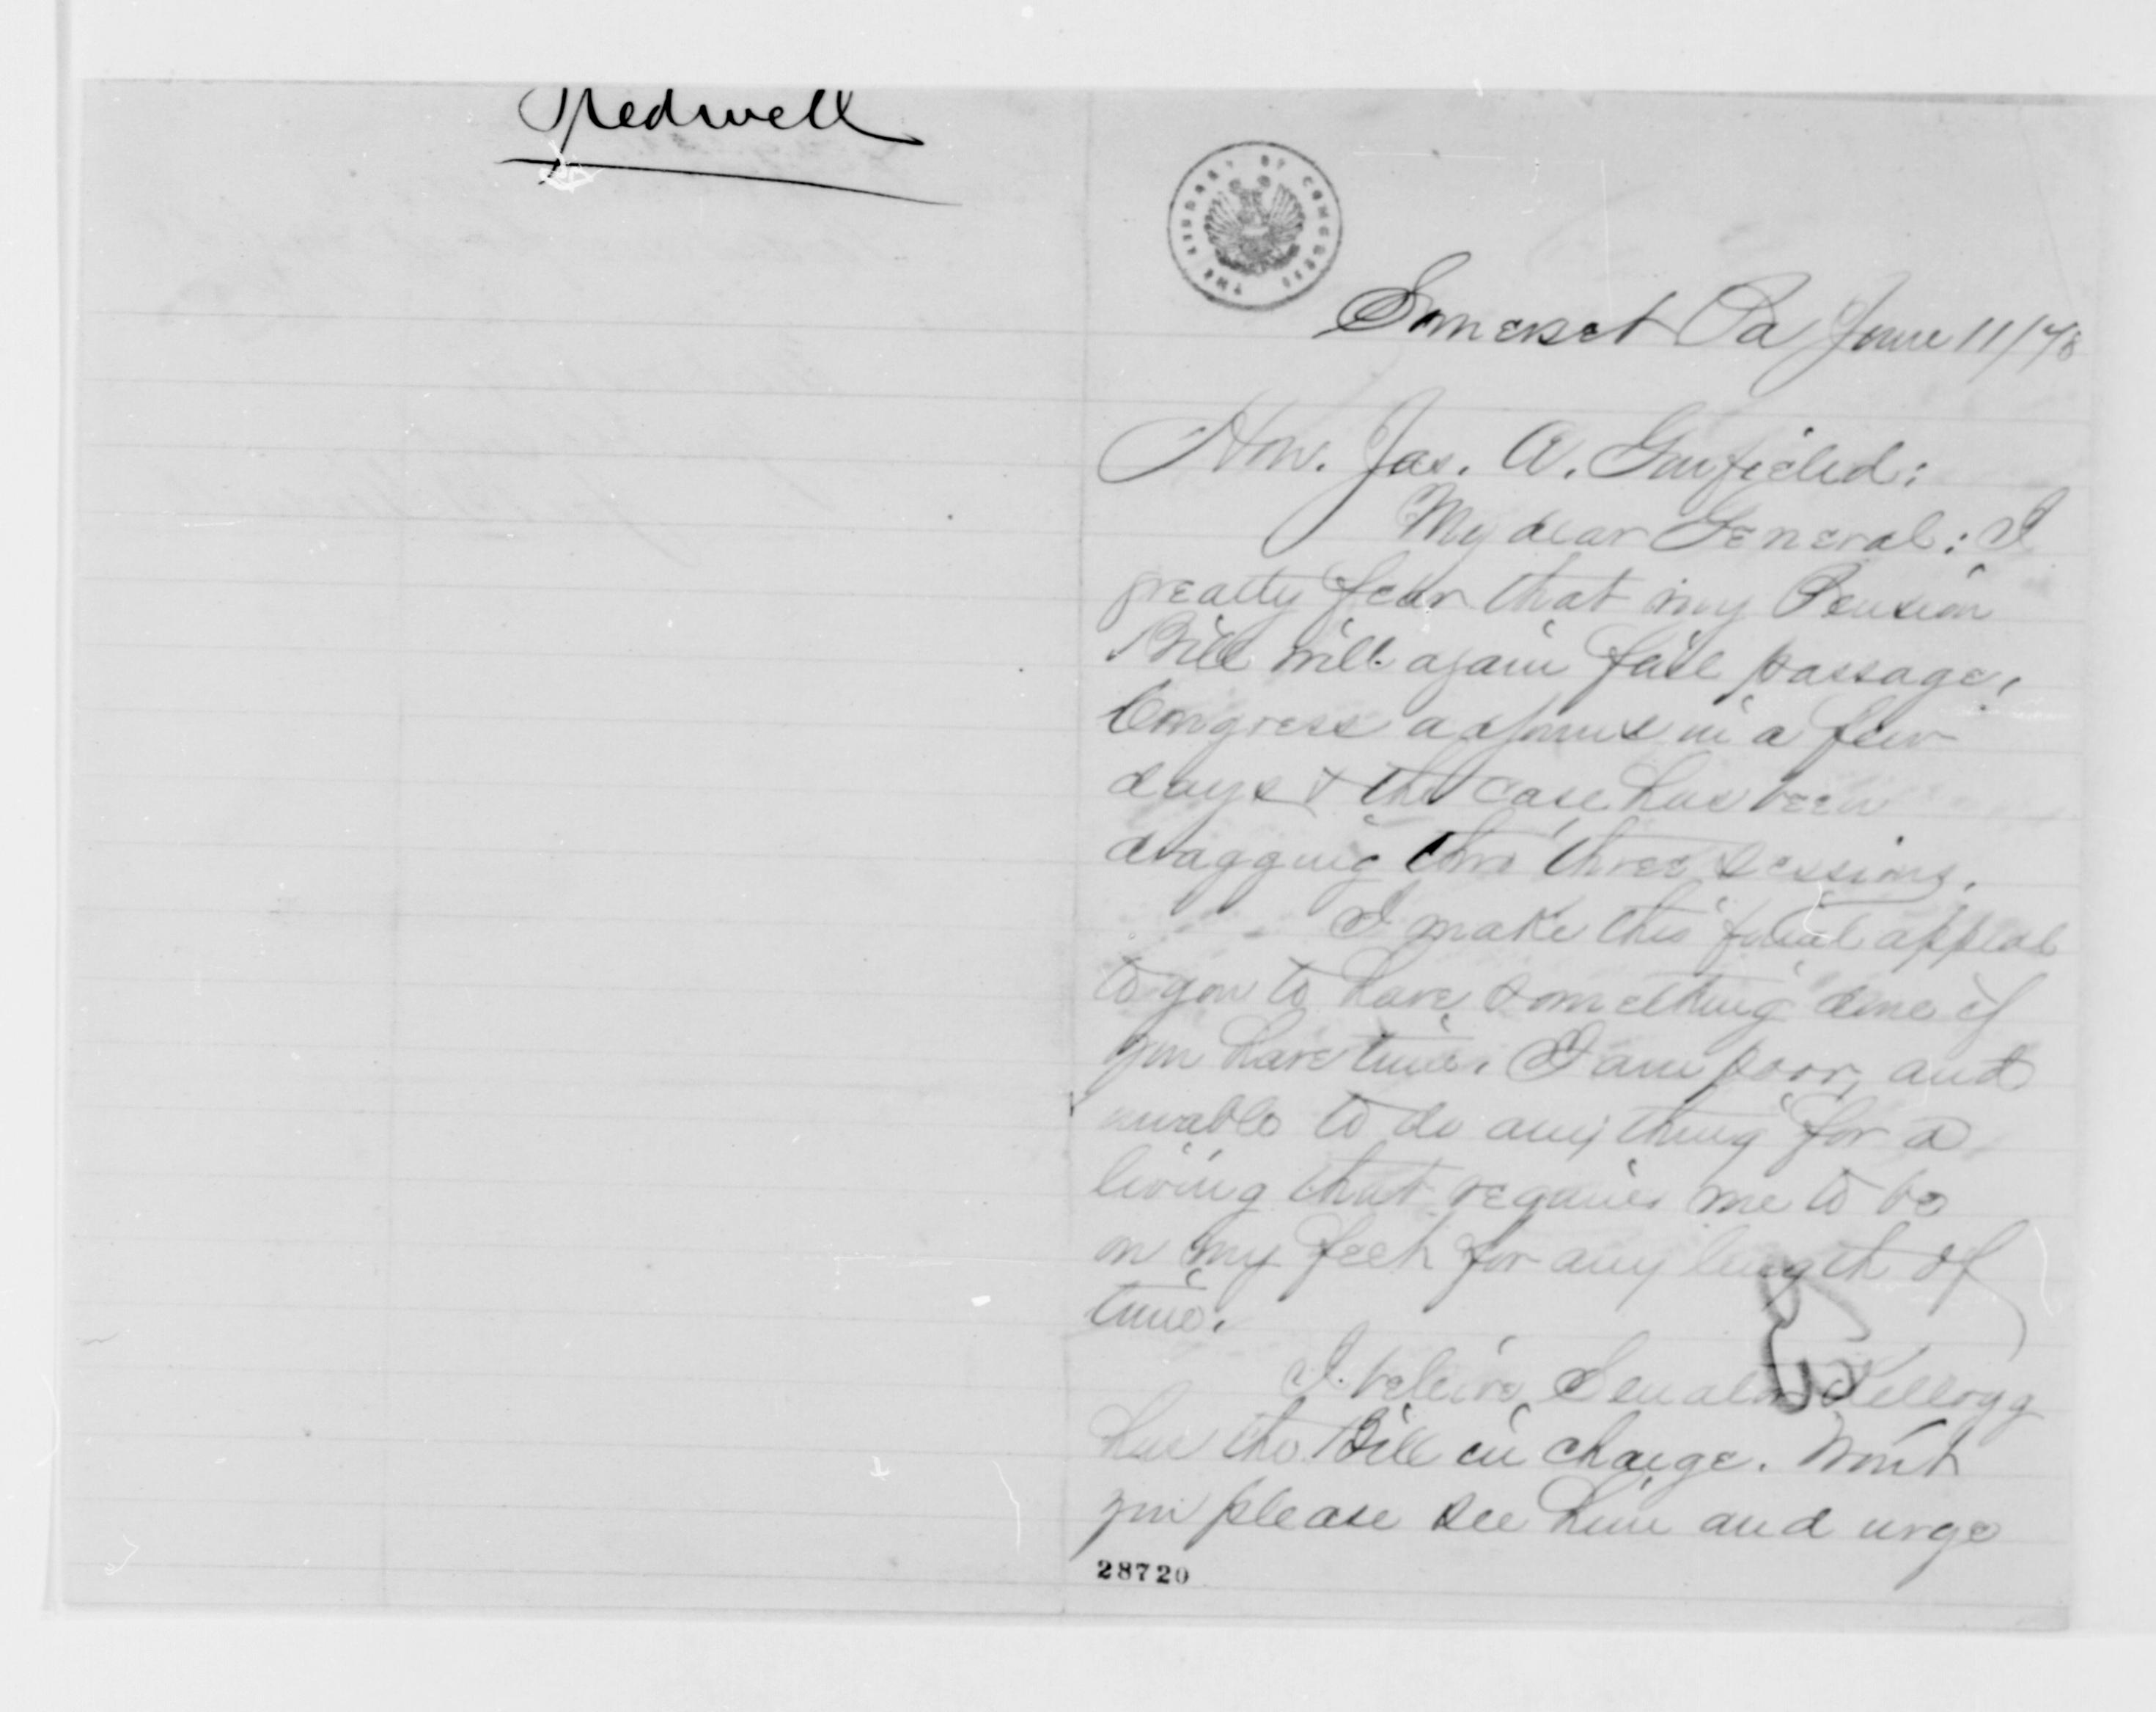 Tredwell
THE LIBRARY OF CONGRESS
Somerset Pa June 11/78
Hon. Jas. A. Garfield:
My dear General: I
greatly fear that my Pension
Bill will again fail passage,
Congress adjourns in a few
days & the case has been
dragging thro' three sessions.
I make this final appeal
to you to have something done if
you have time. I am poor, and
unable to do any thing for a
living that requires me to be
on my feet for any length of
time.
I beleive Senator Kellogg
has the Bill in charge. Won't
you please see him and urge
28720